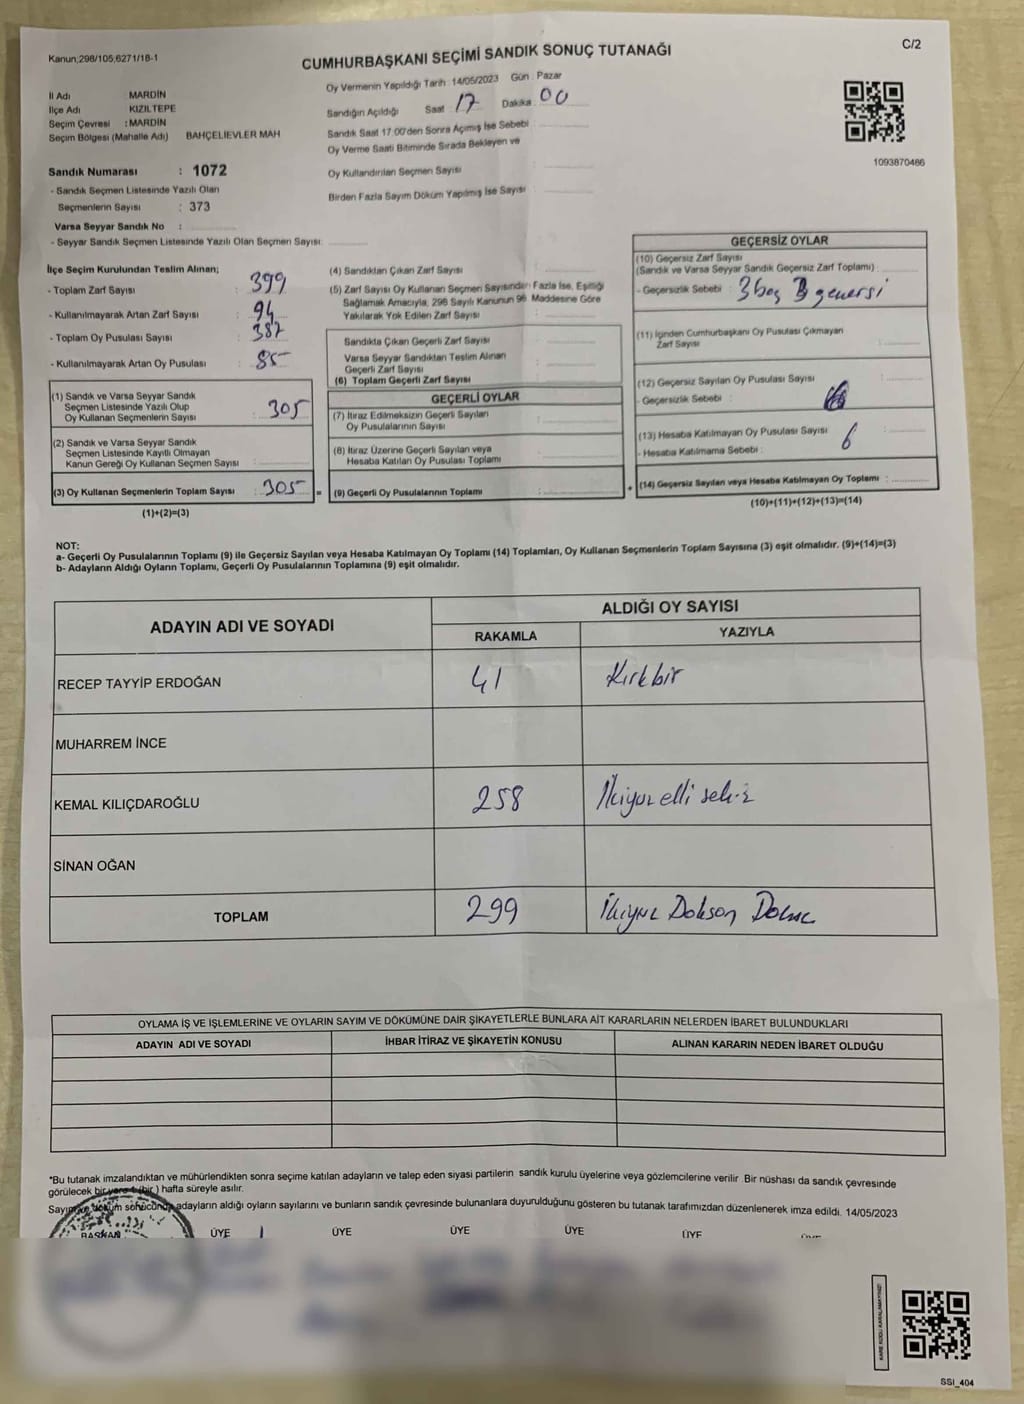 Kanun;298/105,6271/18-1
C/2
CUMHURBAŞKANI SEÇİMİ SANDIK SONUÇ TUTANAĞI
İl Adı MARDİN
İlçe Adı KIZILTEPE
Seçim Çevresi : MARDİN
Seçim Bölgesi (Mahalle Adı) BAHÇELİEVLER MAH
Oy Vermenin Yapıldığı Tarih : 14/05/2023 Gün : Pazar
Sandığın Açıldığı Saat : 17 Dakika 00
Sandık Saat 17.00'den Sonra Açımış İse Sebebi
Oy Verme Saati Bitiminde Sırada Bekleyen ve
Oy Kullandırılan Seçmen Sayısı
Birden Fazla Sayım Döküm Yapılmış İse Sayısı
1093870486
Sandık Numarası : 1072
- Sandık Seçmen Listesinde Yazılı Olan
Seçmenlerin Sayısı : 373
Varsa Seyyar Sandık No :
- Seyyar Sandık Seçmen Listesinde Yazılı Olan Seçmen Sayısı:
İlçe Seçim Kurulundan Teslim Alınan;
- Toplam Zarf Sayısı : 399
- Kullanılmayarak Artan Zarf Sayısı : 94
- Toplam Oy Pusulası Sayısı : 387
- Kullanılmayarak Artan Oy Pusulası : 85
(1) Sandık ve Varsa Seyyar Sandık
Seçmen Listesinde Yazılı Olup
Oy Kullanan Seçmenlerin Sayısı : 305
(2) Sandık ve Varsa Seyyar Sandık
Seçmen Listesinde Kayıtlı Olmayan
Kanun Gereği Oy Kullanan Seçmen Sayısı :
(3) Oy Kullanan Seçmenlerin Toplam Sayısı : 305 =
(1)+(2)=(3)
(4) Sandıktan Çıkan Zarf Sayısı :
(5) Zarf Sayısı Oy Kullanan Seçmen Sayısından Fazla İse, Eşitliği
Sağlamak Amacıyla, 298 Sayılı Kanunun 98. Maddesine Göre
Yakılarak Yok Edilen Zarf Sayısı :
Sandıkta Çıkan Geçerli Zarf Sayısı :
Varsa Seyyar Sandıktan Teslim Alınan
Geçerli Zarf Sayısı
(6) Toplam Geçerli Zarf Sayısı :
GEÇERLİ OYLAR
(7) İtiraz Edilmeksizin Geçerli Sayılan
Oy Pusulalarının Sayısı
(8) İtiraz Üzerine Geçerli Sayılan veya
Hesaba Katılan Oy Pusulası Toplamı
(9) Geçerli Oy Pusulalarının Toplamı : +
GEÇERSİZ OYLAR
(10) Geçersiz Zarf Sayısı
(Sandık ve Varsa Seyyar Sandık Geçersiz Zarf Toplamı) :
- Geçersizlik Sebebi : 3 boş
(11) İçinden Cumhurbaşkanı Oy Pusulası Çıkmayan
Zarf Sayısı :
(12) Geçersiz Sayılan Oy Pusulası Sayısı :
- Geçersizlik Sebebi :
(13) Hesaba Katılmayan Oy Pusulası Sayısı : 6
- Hesaba Katılmama Sebebi :
(14) Geçersiz Sayılan veya Hesaba Katılmayan Oy Toplamı :
(10)+(11)+(12)+(13)=(14)
NOT:
a- Geçerli Oy Pusulalarının Toplamı (9) ile Geçersiz Sayılan veya Hesaba Katılmayan Oy Toplamı (14) Toplamları, Oy Kullanan Seçmenlerin Toplam Sayısına (3) eşit olmalıdır. (9)+(14)=(3)
b- Adayların Aldığı Oyların Toplamı, Geçerli Oy Pusulalarının Toplamına (9) eşit olmalıdır.
ADAYIN ADI VE SOYADI
ALDIĞI OY SAYISI
RAKAMLA YAZIYLA
RECEP TAYYİP ERDOĞAN 41 Kırkbir
MUHARREM İNCE
KEMAL KILIÇDAROĞLU 258 İkiyüz elli sekiz
SİNAN OĞAN
TOPLAM 299 İkiyüz Doksan Dokuz
OYLAMA İŞ VE İŞLEMLERİNE VE OYLARIN SAYIM VE DÖKÜMÜNE DAİR ŞİKAYETLERLE BUNLARA AİT KARARLARIN NELERDEN İBARET BULUNDUKLARI
ADAYIN ADI VE SOYADI İHBAR İTİRAZ VE ŞİKAYETİN KONUSU ALINAN KARARIN NEDEN İBARET OLDUĞU
*Bu tutanak imzalandıktan ve mühürlendikten sonra seçime katılan adayların ve talep eden siyasi partilerin sandık kurulu üyelerine veya gözlemcilerine verilir. Bir nüshası da sandık çevresinde
görülecek bir yere 1 (bir ) hafta süreyle asılır.
Sayım ve döküm sonucunda adayların aldığı oyların sayılarını ve bunların sandık çevresinde bulunanlara duyurulduğunu gösteren bu tutanak tarafımızdan düzenlenerek imza edildi. 14/05/2023
BAŞKAN ÜYE ÜYE ÜYE ÜYE ÜYE
KARE KODU KARALAMAYINIZ!
SSI_404